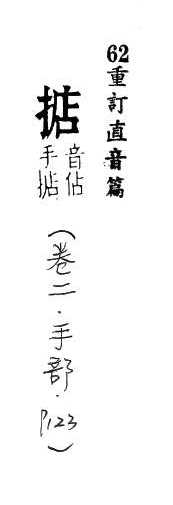 62重訂直音篇
掂
音佔
手掂
（卷二．手部．P123）